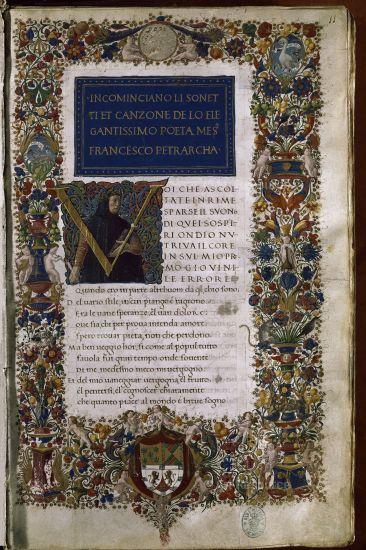 INCOMINCIANO LI SONET
TI ET CANZONE DE LO ELE
GANTISSIMO POETA MES
FRANCESCO PETRARCHA
VOI CHE ASCOL
TATE IN RIME
SPARSE IL SVONO
DI QVEI SOSPI
RI ONDIO NV
TRIVA IL CORE
IN SVL MIO PRI
MO GIOVINI
LE ERRORE
Quando ero in parte altrhuom da quel chio sono
Del uario stile, in cui piango et ragiono
Era le uane speranze, el uan dolore
Oue sia chi per proua intenda amore
Spero trouar pieta, non che perdono
Ma ben ueggio hor, si come al popul tutto
Fauola fui gran tempo onde souente
Di me medesimo meco mi uergogno
Et del mio uaneggiar uergogna, el fruto
El pentersi, el cognoscer chiaramente
Che quanto piace al mondo è breue sogno